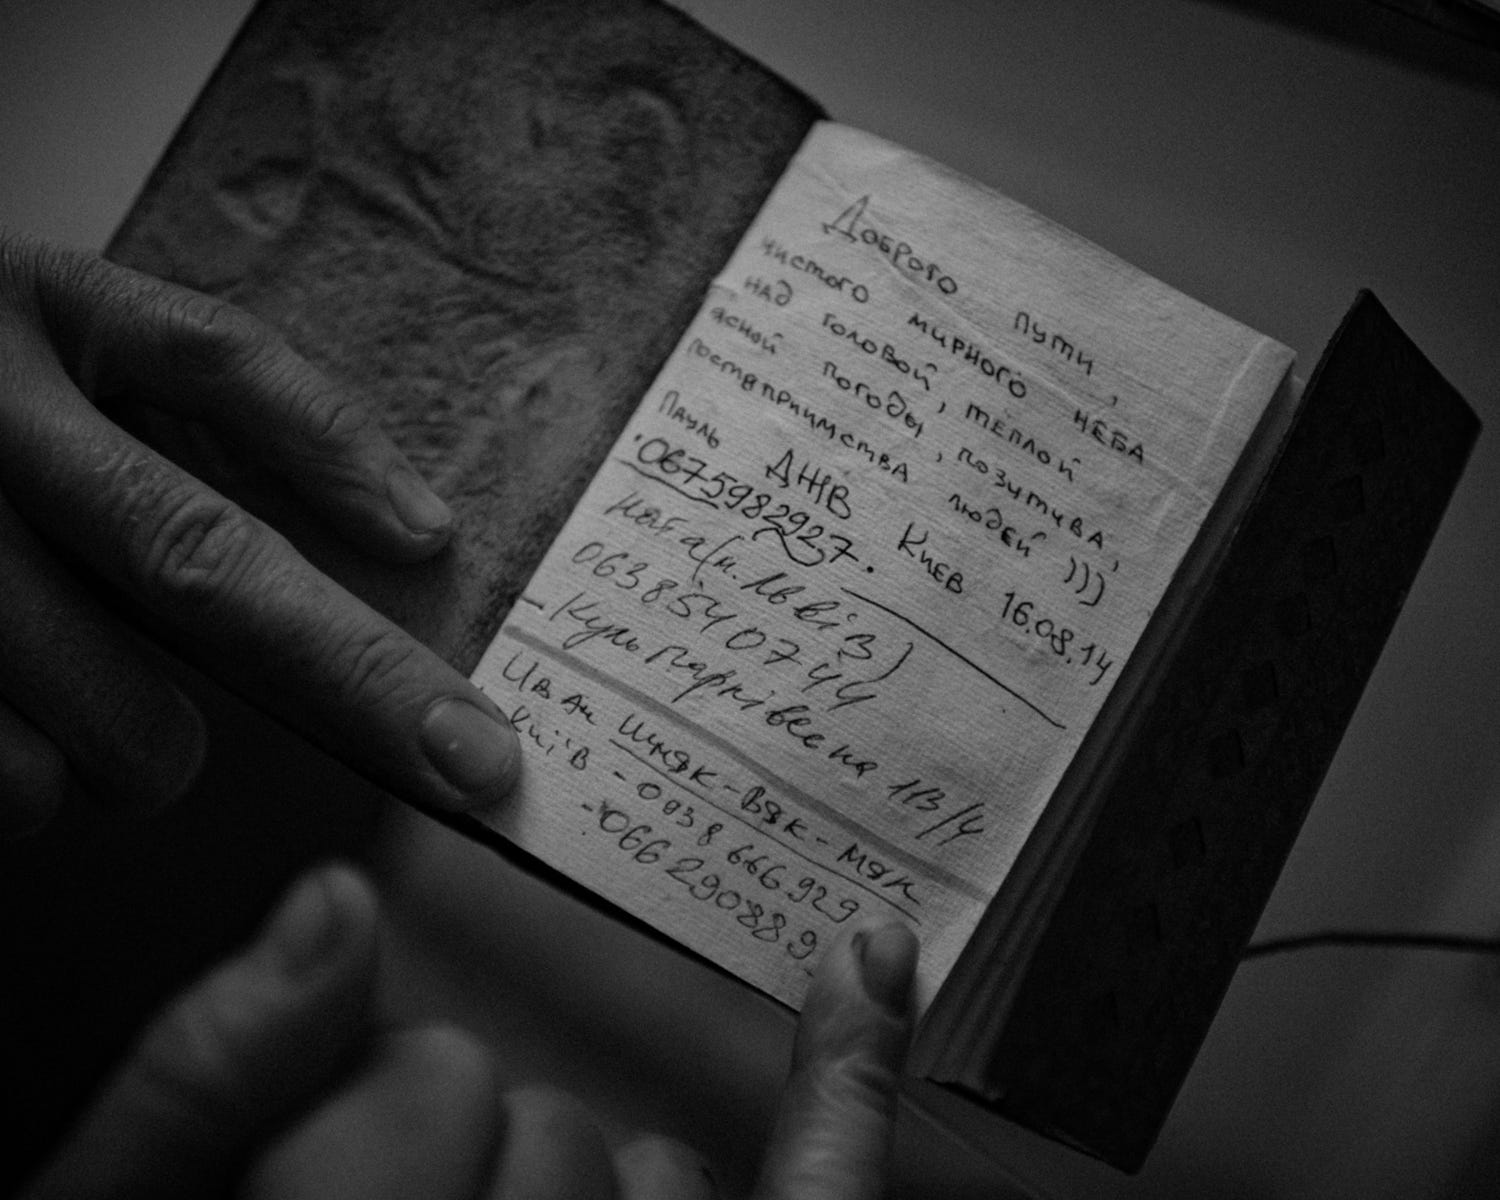 Доброго пути,
чистого мирного неба
над головой, теплой
ясной погоды, позитива,
гостеприимства людей )))
Пауль ДЖВ Киев 16.08.14
0675982927.
Ната (м. Львів)
0638540744
Кульпарківська 113/4
Иван Шняк-Вяк-Мяк
Київ - 0938666929
- 066290889